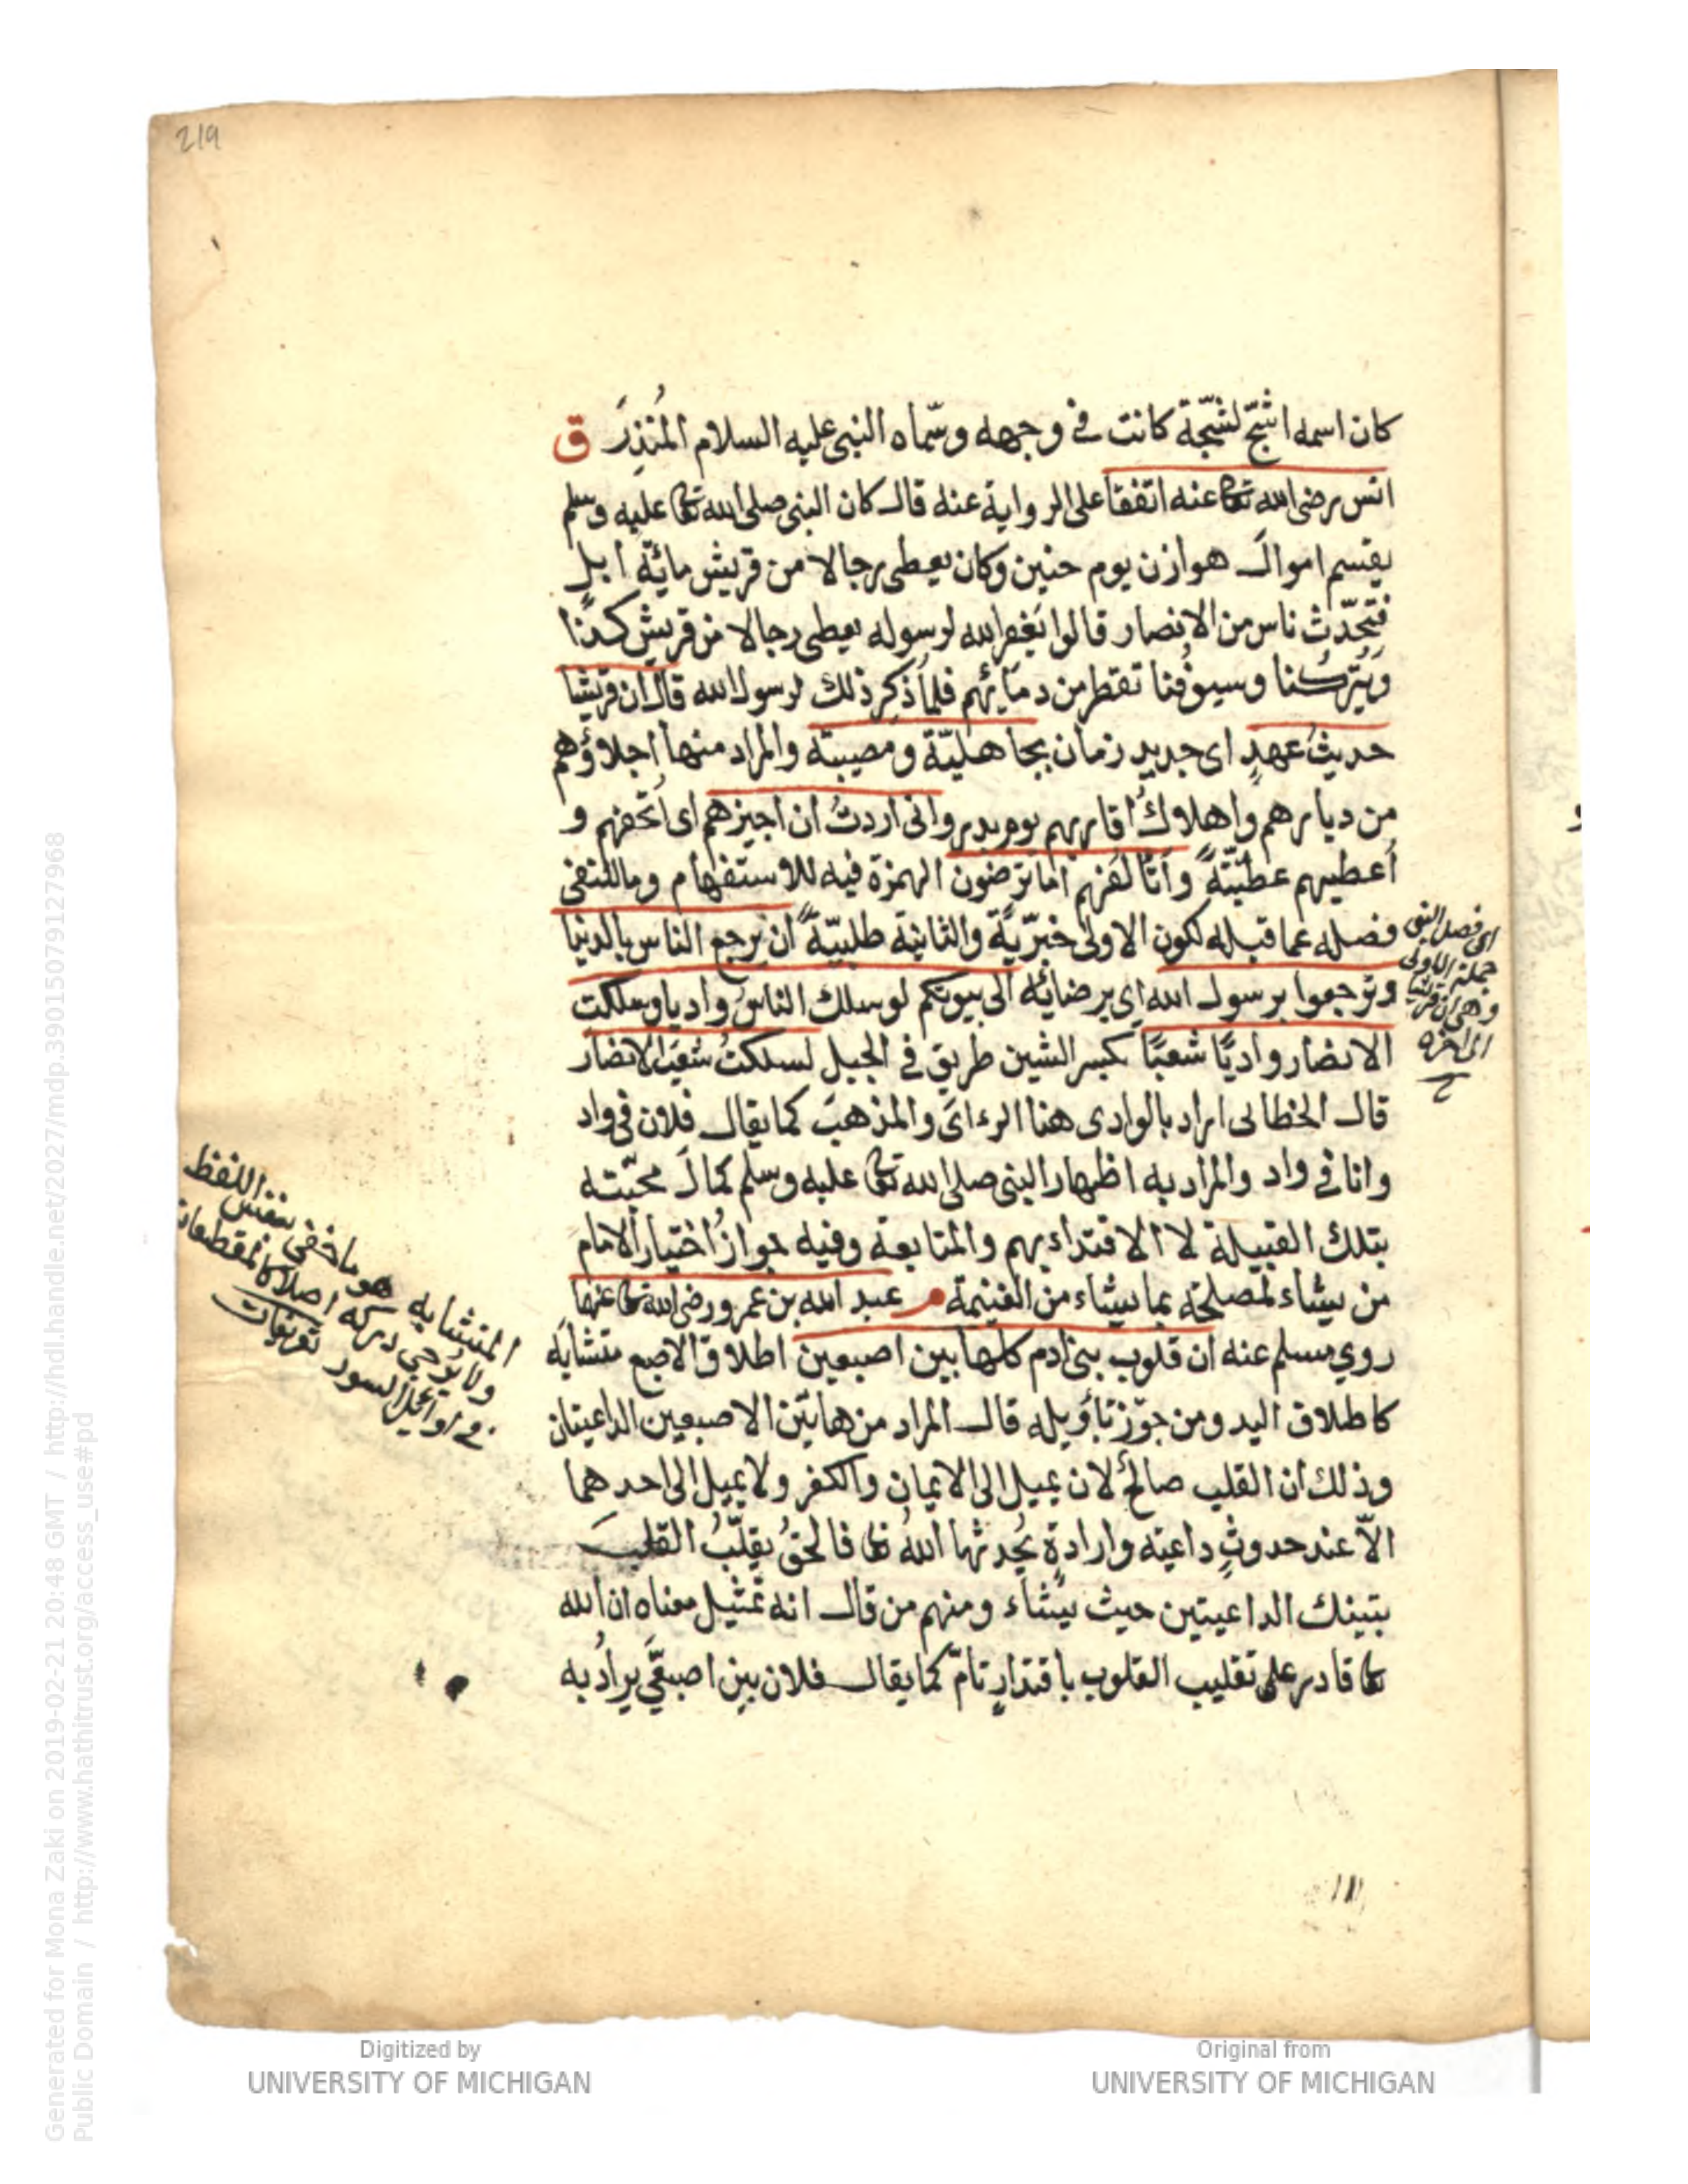 219
كان اسمه اشجّ لشجّة كانت في وجهه وسمّاه النبي عليه السلام المُنذِرَ ق
انس رضى الله تعا عنه اتفقا على الرواية عنه قال كان النبى صلى الله تعا عليه وسلم
يقسم اموالَ هوازن يوم حنين وكان يعطى رجالا من قريش مائة ابل
فتحدّث ناس من الانصار قالوا يَغفر الله لرسوله يعطى رجالا من قريش كذا
وَيَتركنا وسيوفُنا تقطر من دمائهم فلما ذُكِر ذلك لرسول الله قال ان قريشا
حديثُ عهدٍ اى جديد زمان بجاهليّة ومصيبة والمراد منها اجلاؤهم
من ديارهم واهلاكُ اقاربهم يوم بدر وانى اردتُ ان اجيزهم اى اتحفهم و
أعطيهم عطيّةً واتألفهم اما ترضون الهمزة فيه للاستفهام وما للنفى
فصله عما قبله لكون الاولى خبريّة والثانية طلبيّةً ان يرجع الناس بالدنيا
وترجعوا برسول الله اى برضائه الى بيوتكم لو سلك الناسُ واديا وسلكت
الانصار واديًا شعبًا بكسر الشين طريق في الجبل لسلكتُ شعبَ الانصار
قال الخطابى اراد بالوادى هنا الرءاىَ والمذهبَ كما يقال فلان فى واد
وانا في واد والمراد به اظهار النبى صلى الله تعا عليه وسلم كمالَ محبّته
بتلك القبيلة لا الاقتداء بهم والمتابعة وفيه جوازُ اختيار الامام
من يشاء لمصلحة بما يشاء من الغنيمة م عبد الله بن عمرو رضى الله تعا عنهما
روي مسلم عنه ان قلوب بنى آدم كلها بين اصبعين اطلاق الاصبع متشابه
كاطلاق اليد ومن جوّز تأويله قال المراد من هاتَين الاصبعين الداعيتان
وذلك ان القلب صالحٌ لان يميل الى الايمان والكفر ولا يميل الى احدهما
الّا عند حدوثِ داعية وارادةٍ يُحدثها اللهُ تعا فالحقُ يقلّبُ القلبَ
بتينك الداعيتين حيث يشاء ومنهم من قال انه تمثيل معناه ان الله
تعا قادر على تقليب القلوب باقتدارٍ تامّ كما يقال فلان بين اصبعَيّ يرادُ به
اى فصل النبى
جملة الاولى
وهى ان قريشا
الى اخره
المتشابه هو ما خفى بنفس اللفظ
ولا يُرجى دركه اصلا كالمقطعات
في اوائل السور تعريفات
Digitized by
UNIVERSITY OF MICHIGAN
Original from
UNIVERSITY OF MICHIGAN
Generated for Mona Zaki on 2019-02-21 20:48 GMT / http://hdl.handle.net/2027/mdp.39015079127968
Public Domain / http://www.hathitrust.org/access_use#pd